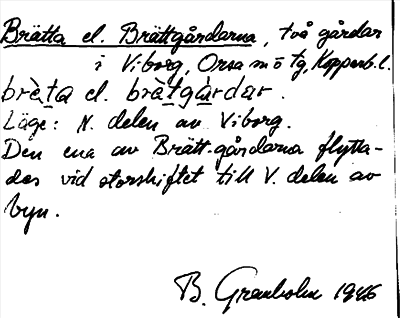 Brätta el. Brättgårdarna, två gårdar
i Viborg, Orsa sn o tg, Kopparb. l.
brèta el. brètgàrdar.
Läge: N. delen av Viborg.
Den ena av Brätt-gårdarna flytta-
des vid storskiftet till V. delen av
byn.
B. Granholm 1946